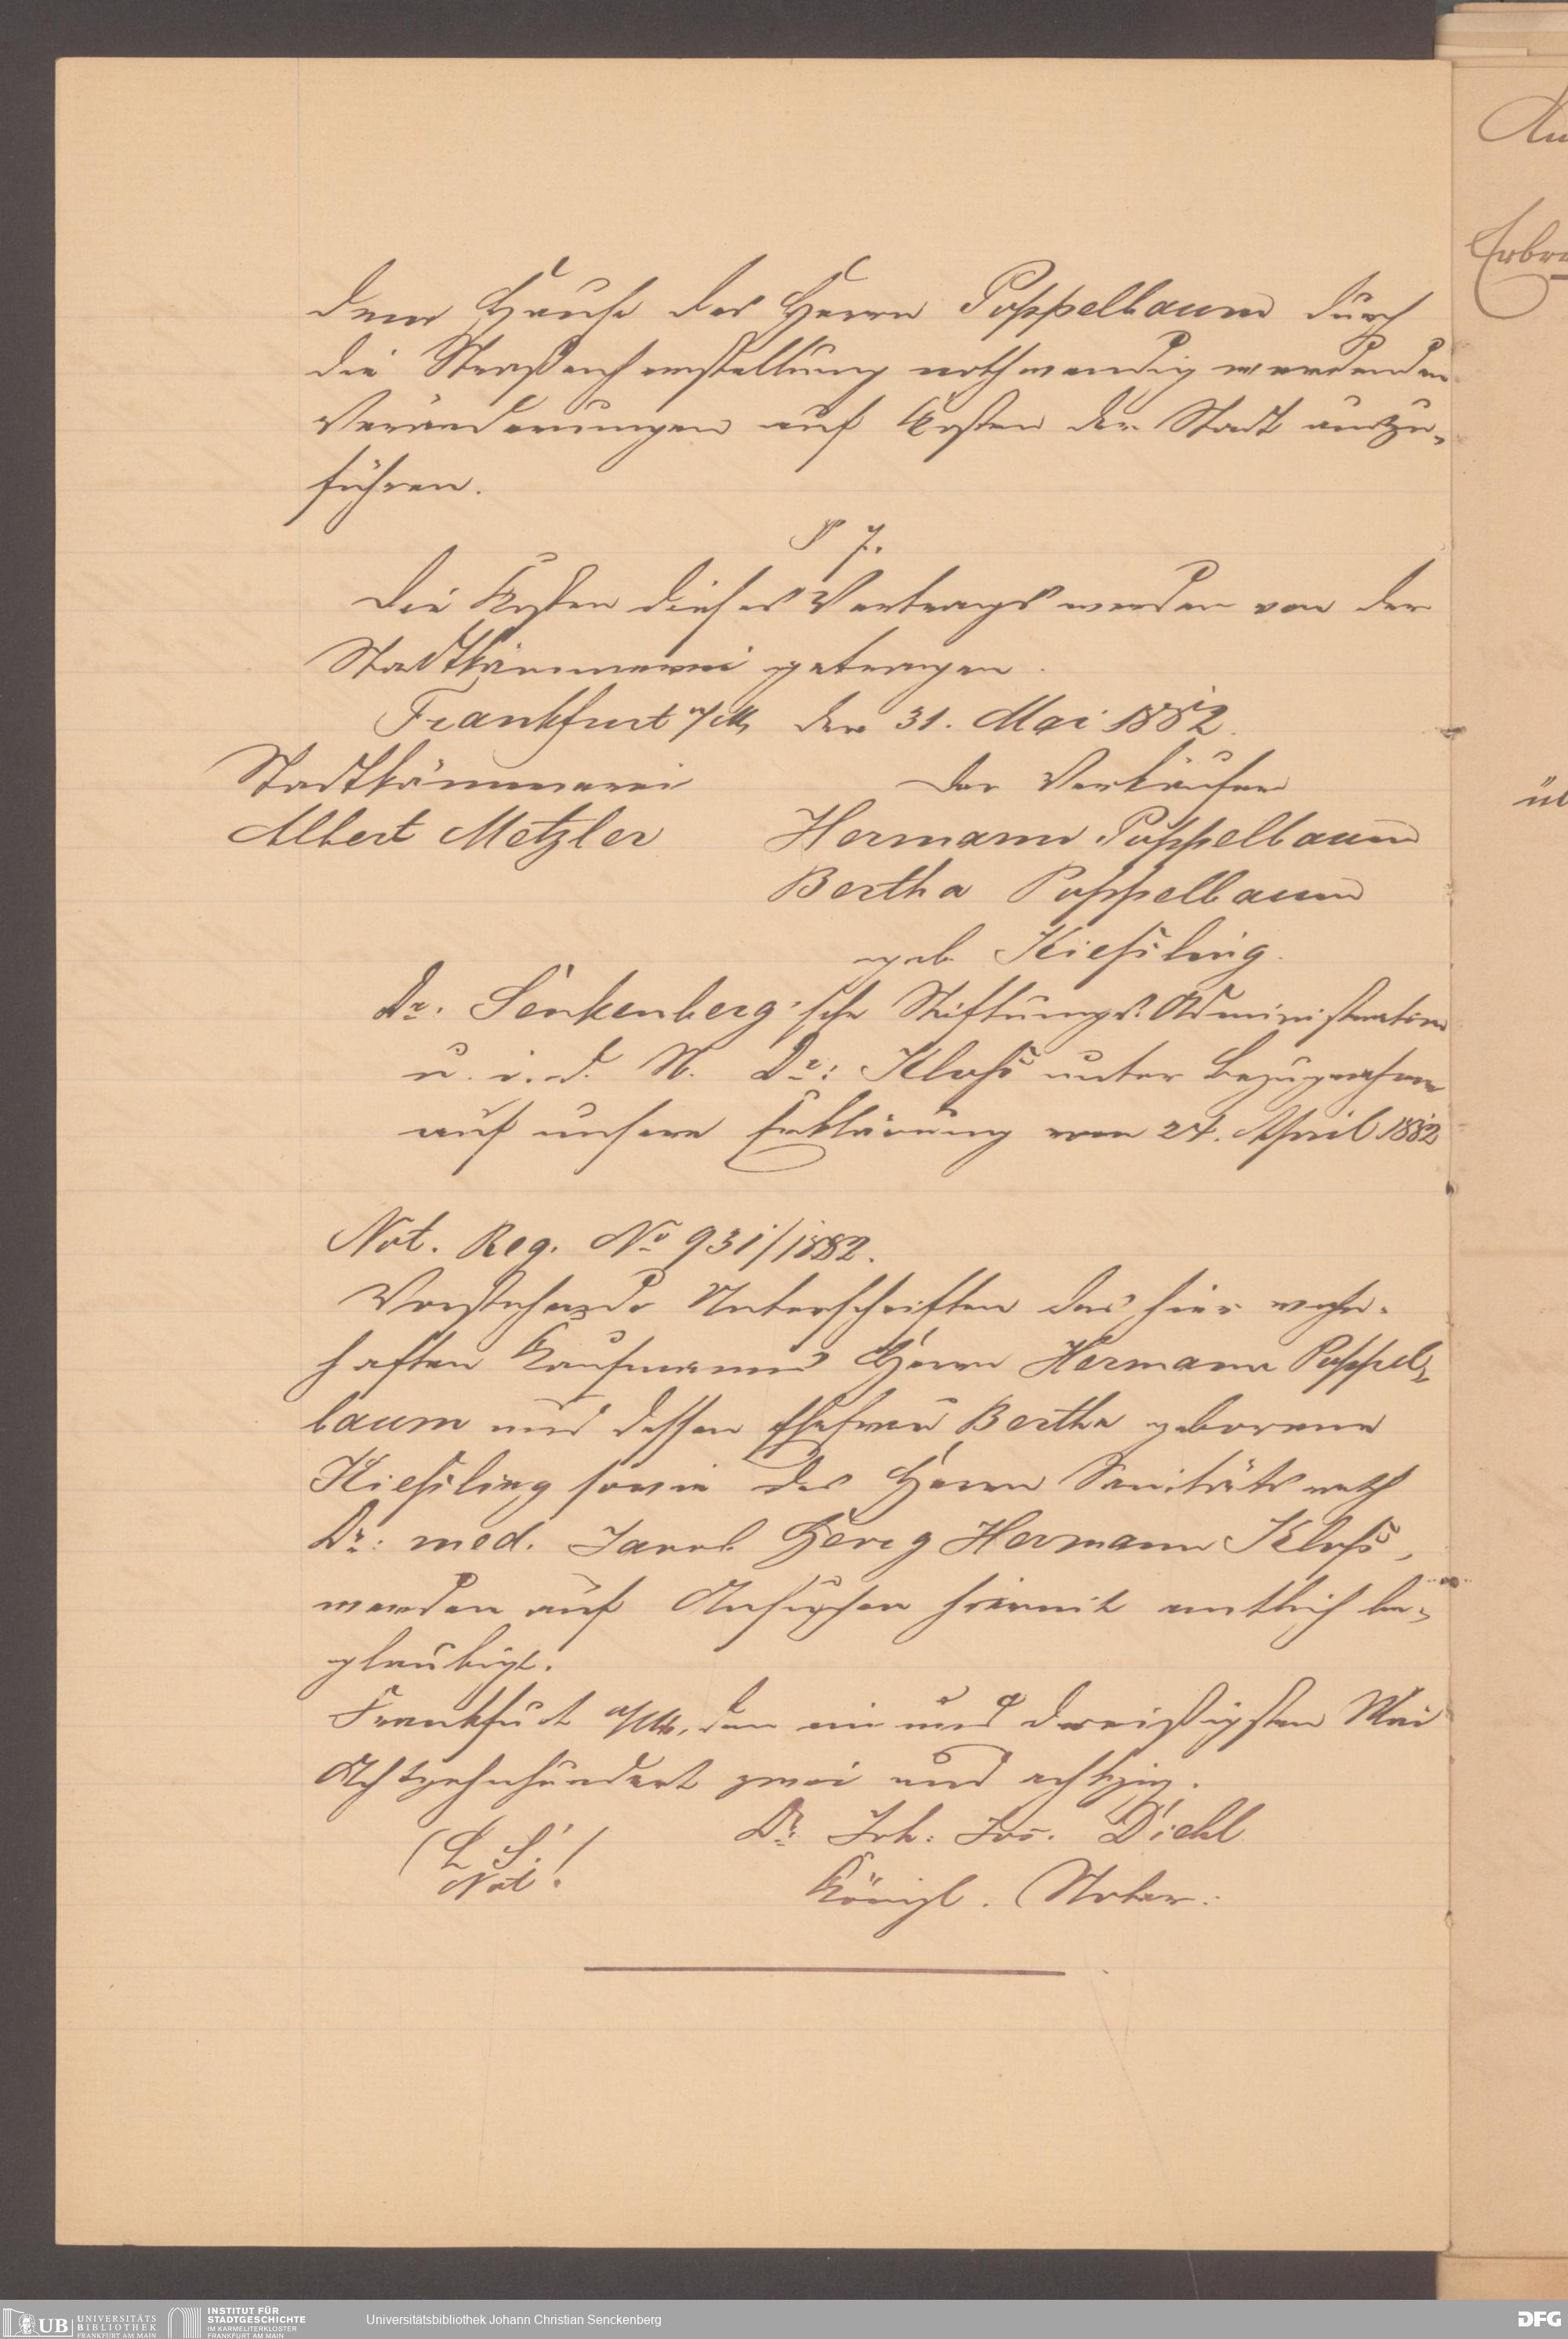 dem Hause des Herrn Poppelbaum durch
die Straßenherstellung nothwendig werdenden
Veränderungen auf Kosten der Stadt auszu-
führen.
§ 7.
Die Kosten dieses Vertrags werden von der
Stadtkämmerei getragen.
Frankfurt a/M, den 31. Mai 1882.
Stadtkämmerei
Der Verkäufer
Albert Metzler
Hermann Poppelbaum
Bertha Poppelbaum
geb Kießling.
Dr. Senkenberg'sche Stiftungs-Administration
u. i. d. N. Dr: Kloß unter Bezugnahme
auf unsere Erklärung vom 24. April 1882
Not. Reg. No 931/1882.
Vorstehende Unterschriften des hier wohn-
haften Kaufmanns Herrn Hermann Poppel-
baum und dessen Ehefrau Bertha geborene
Kießling sowie des Herrn Sanitätsrath
Dr: med. Jacob Georg Hermann Kloß,
werden auf Ansuchen hiermit amtlich be-
glaubigt.
Frankfurt a/M, den ein und dreißigsten Mai
Achtzehnhundert zwei und achtzig.
Dr. Joh: Jos. Diehl
(L. S.)
Not.
Königl. Notar.
Erbr
UB UNIVERSITÄTS BIBLIOTHEK FRANKFURT AM MAIN
INSTITUT FÜR STADTGESCHICHTE IM KARMELITERKLOSTER FRANKFURT AM MAIN
Universitätsbibliothek Johann Christian Senckenberg
DFG